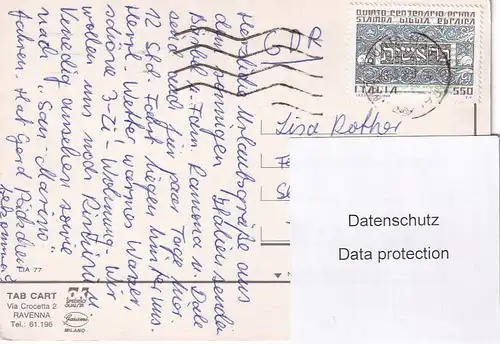 Herzliche Urlaubsgrüße aus
dem sonnigen Italien senden
Fam. Ramona u. Dale
sind auf für paar Tage hier.
12 Std. Fahrt liegen hinter uns.
Herrl. Wetter warmes Wasser,
schöne 3-Zi-Wohnung. Wir
wollen uns noch Rimini u.
Venedig ansehen sowie
nach "San-Marino"
fahren. Hat Gerd Päckchen
bekommen?
DDR
QUINTO CENTENARIO PRIMA
STAMPA BIBBIA EBRAICA
ITALIA 550
Lisa Rother
Datenschutz
Data protection
RA 77
TAB CART
Via Crocetta 2
RAVENNA
Tel.: 61.196
MILANO